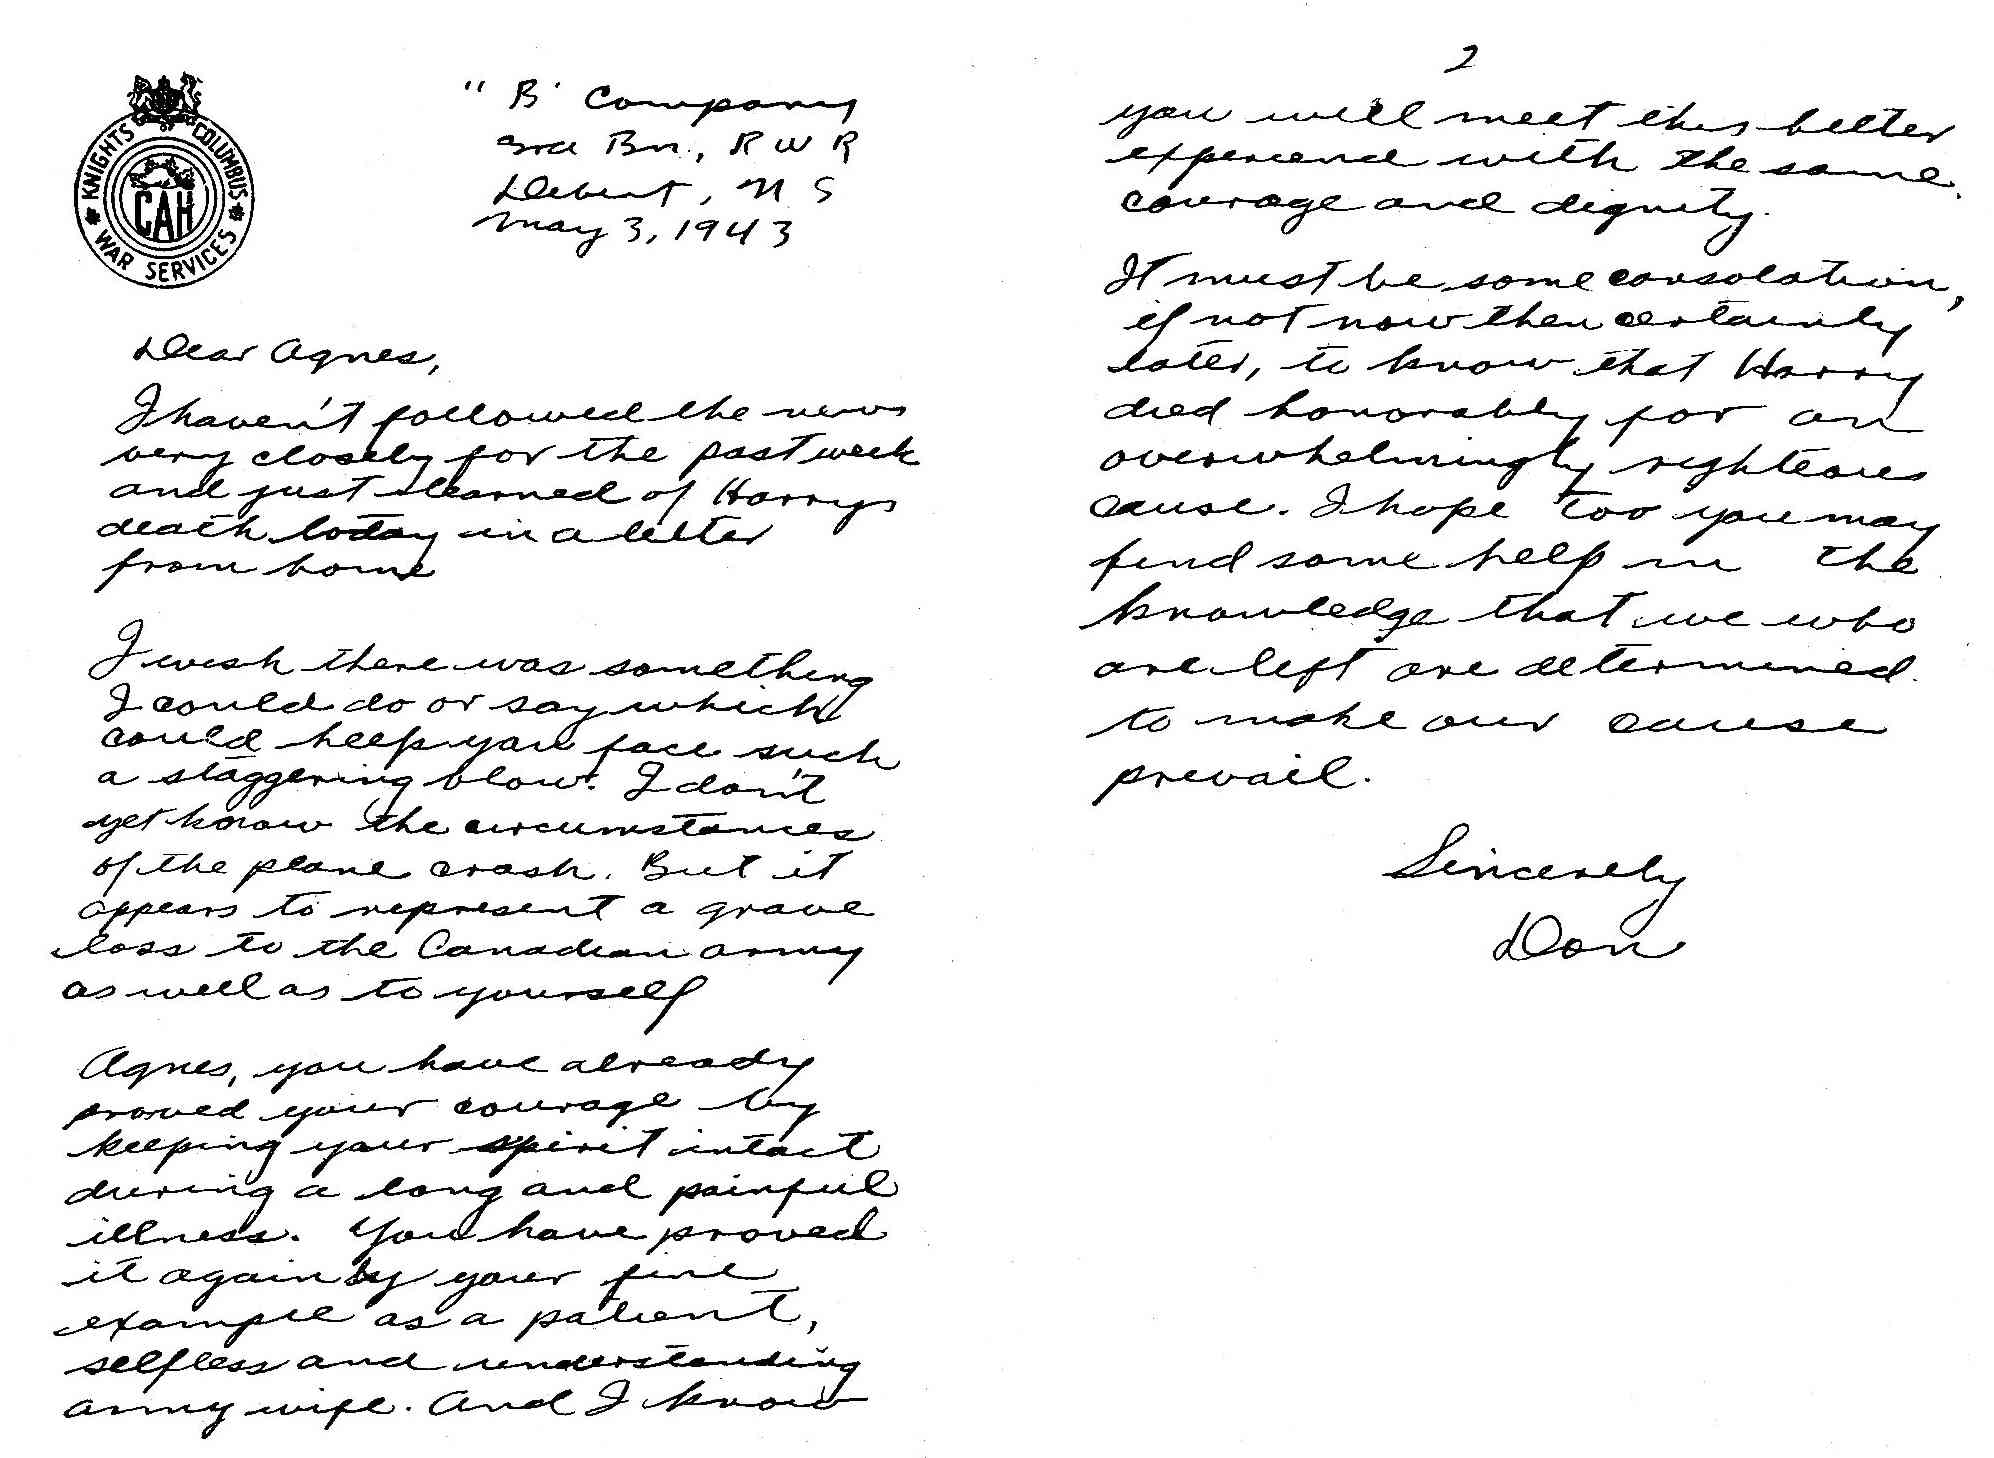 KNIGHTS OF COLUMBUS
CAH
WAR SERVICES
"B" Company
3rd Bn., R W R
Debert, N S
May 3, 1943
Dear Agnes,
I haven't followed the news
very closely for the past week
and just learned of Harrys
death today in a letter
from home
I wish there was something
I could do or say which
could help you face such
a staggering blow. I don't
yet know the circumstances
of the plane crash. But it
appears to represent a grave
loss to the Canadian army
as well as to yourself
Agnes, you have already
proved your courage by
keeping your spirit intact
during a long and painful
illness. You have proved
it again by your fine
example as a patient,
selfless and understanding
army wife. And I know
2
you will meet this bitter
experience with the same
courage and dignity.
It must be some consolation,
if not now then certainly
later, to know that Harry
died honorably for an
overwhelmingly righteous
cause. I hope too you may
find some help in the
knowledge that we who
are left are determined
to make our cause
prevail.
Sincerely
Don